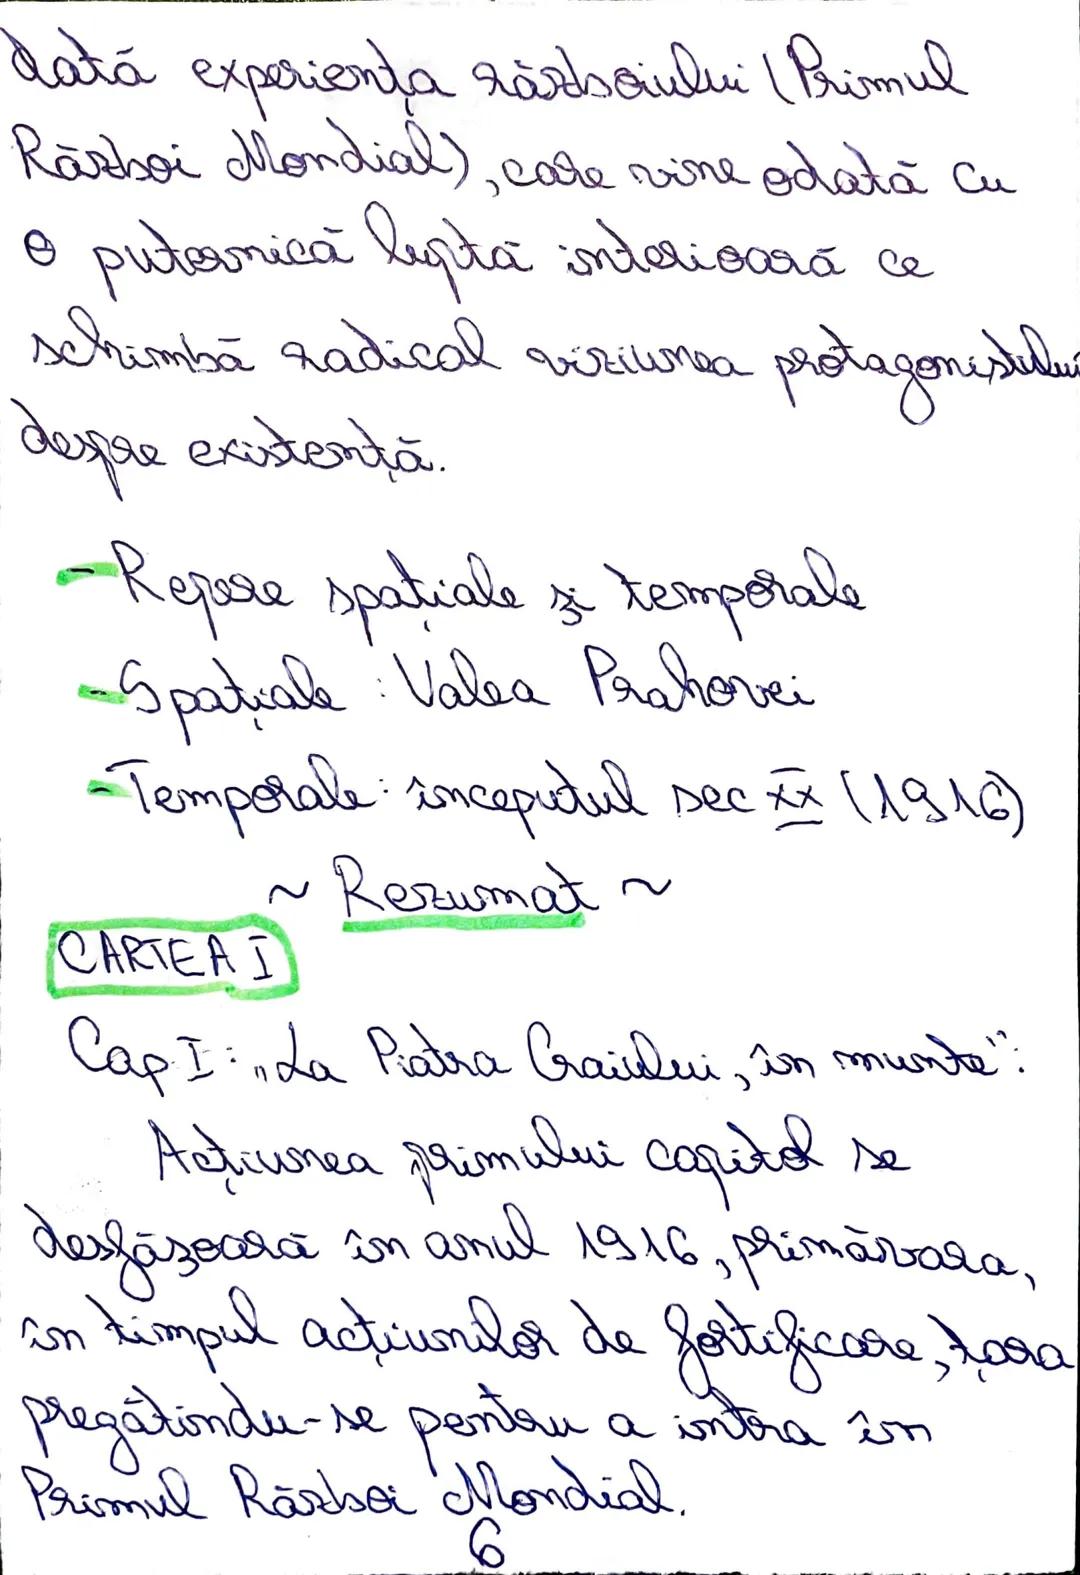 dată experiența războiului (Primul
Război Mondial), care vine odată cu
o puternică luptă interioară ce
schimbă radical viziunea protagonistului
despre existență.
- Repere spațiale și temporale
- Spațiale : Valea Prahovei
- Temporale : începutul sec XX (1916)
~ Rezumat ~
CARTEA I
Cap. I : „La Piatra Craiului, în munte":
Acțiunea primului capitol se
desfășoară în anul 1916, primăvara,
în timpul acțiunilor de fortificare, țara
pregătindu-se pentru a intra în
Primul Război Mondial.
6